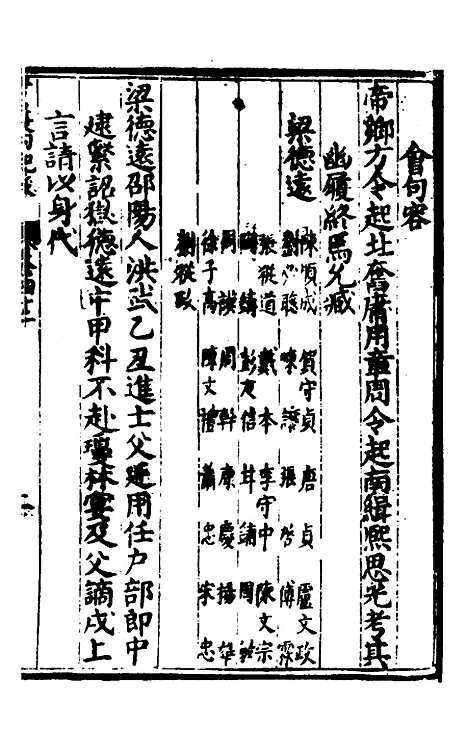 會句容
帝鄉方令起北舊庸用童問令起南緝熙思光考其
幽履終焉允臧
梁德遠
陳順成 賀守貞 唐貞 盧文政
劉 聰 陳 張 傅霖
張從道 戴本 李守中 陳文宗
周鑄 彭友信 甘鏞 周
周謨 周幹 康慶 楊雄
徐子高 陳文禮 蕭忠 宋忠
劉從政
梁德遠邵陽人洪武乙丑進士父延用任户部郎中
逮繫詔獄德遠中甲科不赴瓊林宴及父謫戍上
言請以身代